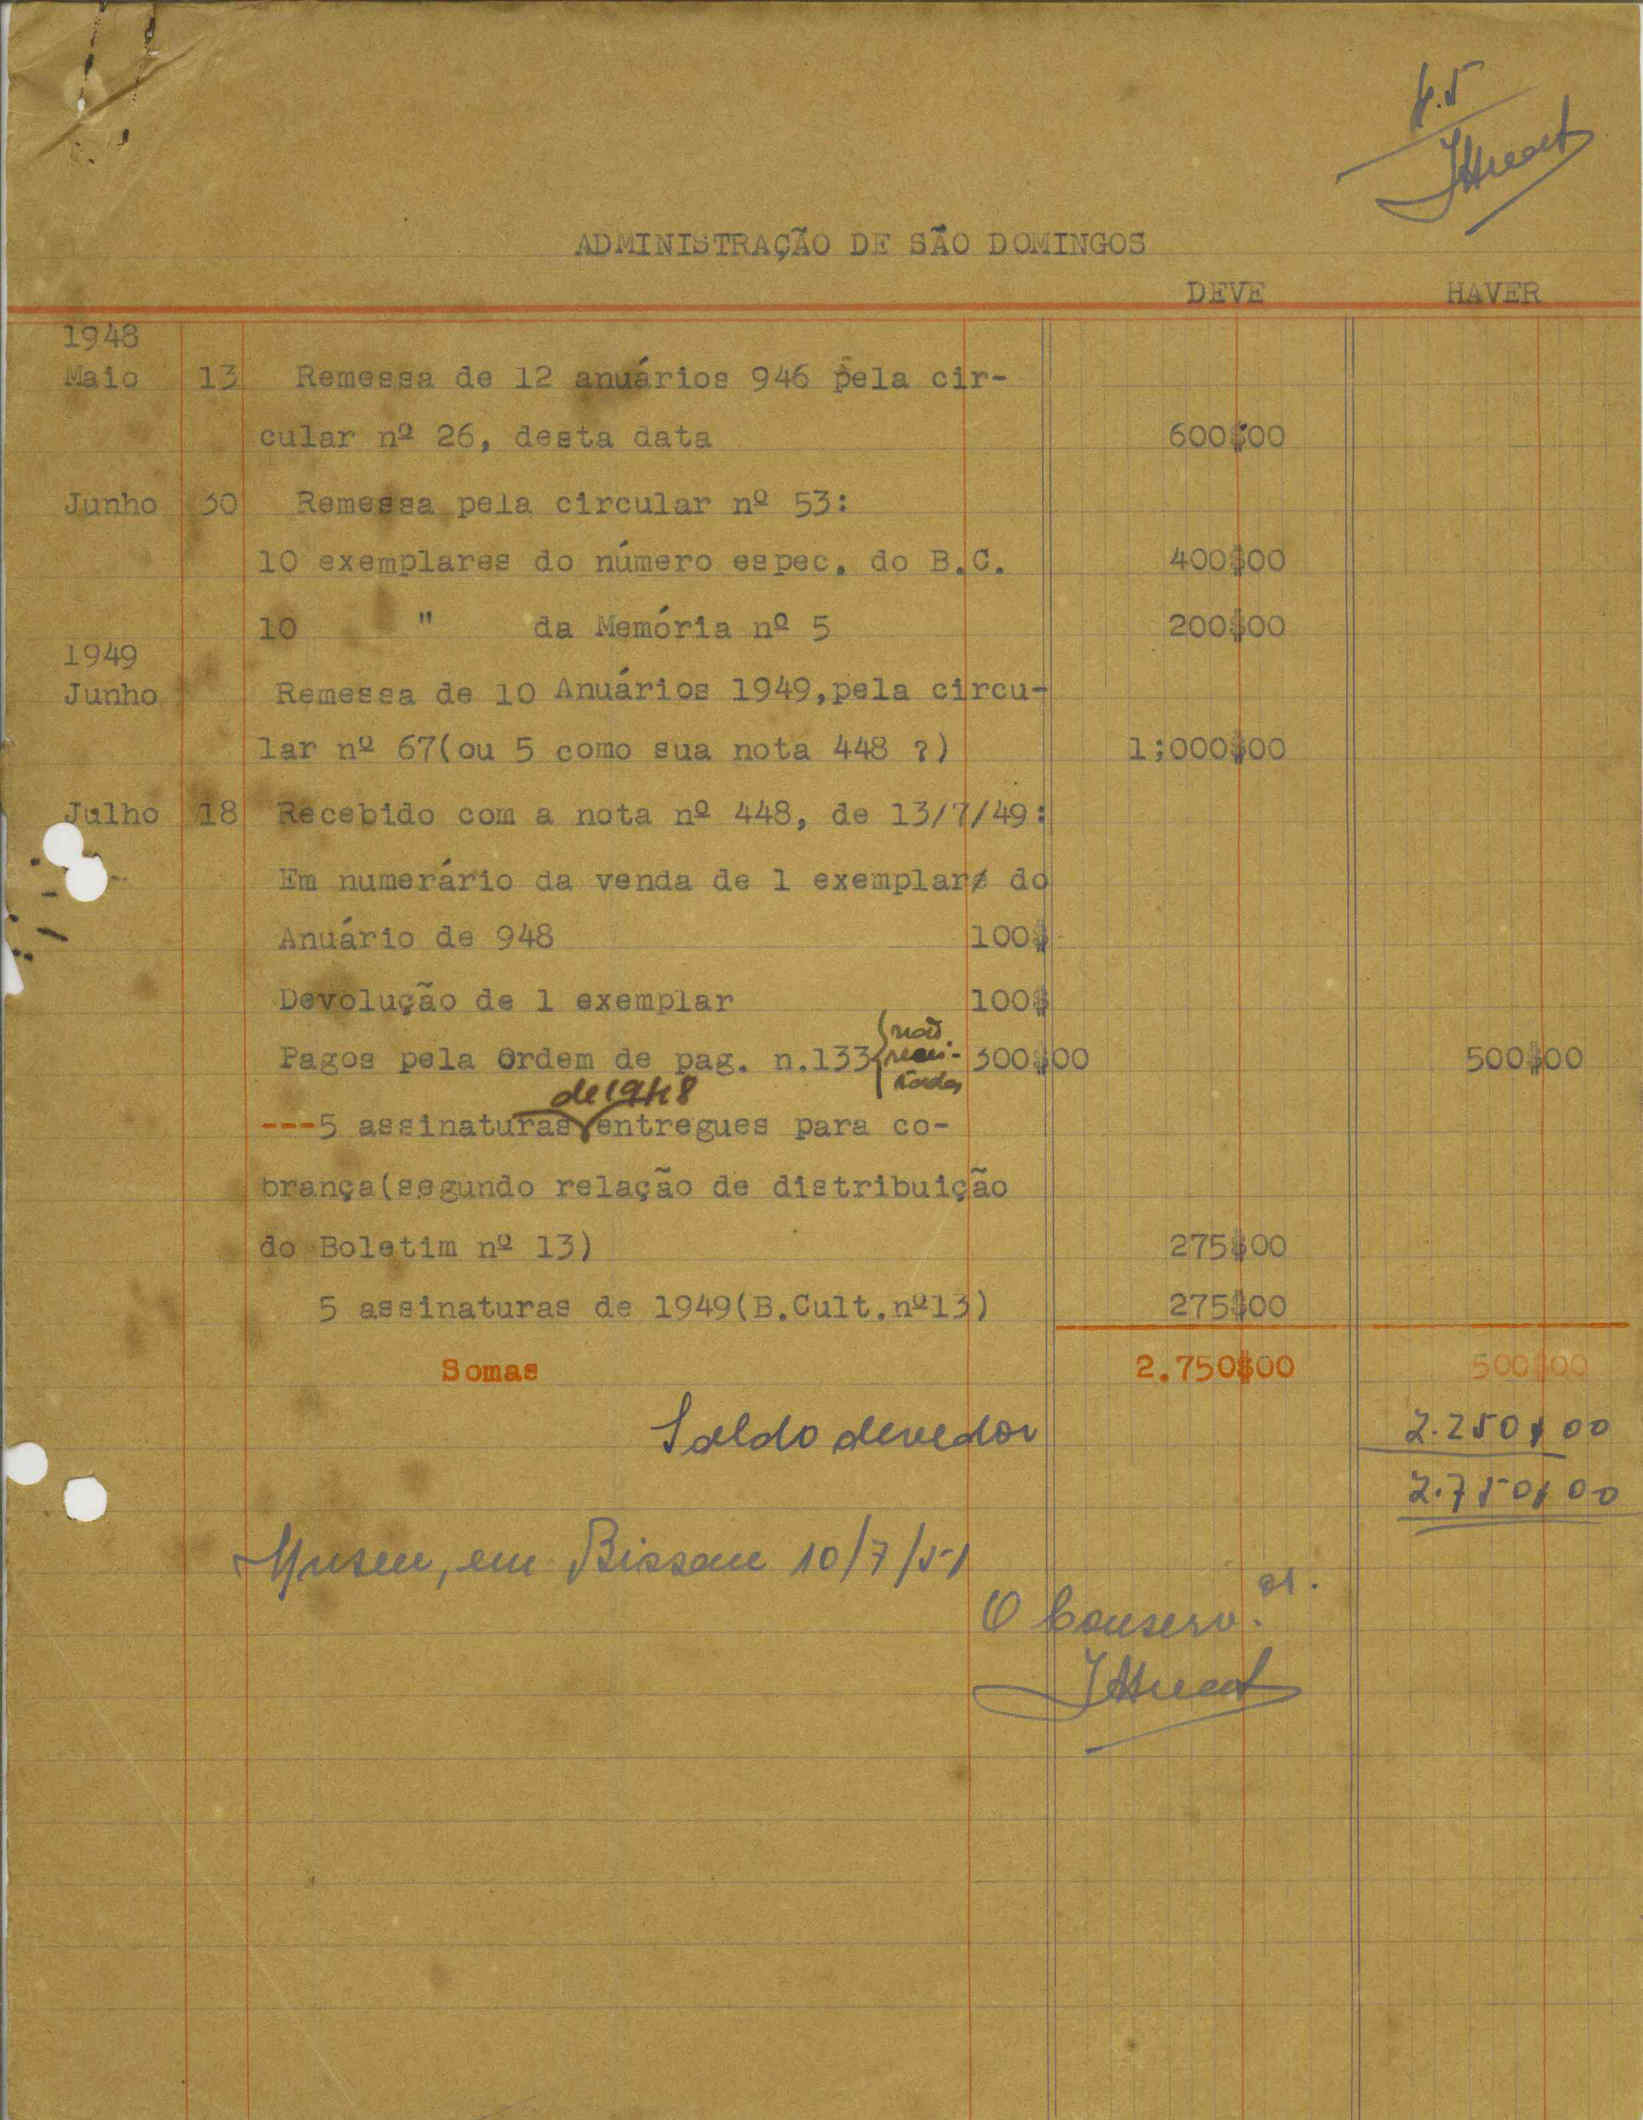 4.5
ADMINISTRAÇÃO DE SÃO DOMINGOS
DEVE HAVER
1948
Maio 13 Remessa de 12 anuários 946 pela cir-
cular nº 26, desta data 600$00
Junho 30 Remessa pela circular nº 53:
10 exemplares do número espec. do B.C. 400$00
10 " da Memória nº 5 200$00
1949
Junho Remessa de 10 Anuários 1949,pela circu-
lar nº 67(ou 5 como sua nota 448 ?) 1;000$00
Julho 18 Recebido com a nota nº 448, de 13/7/49:
Em numerário da venda de 1 exemplar do
Anuário de 948 100$
Devolução de 1 exemplar 100$
Pagos pela Ordem de pag. n.133 não 300$00 500$00
de 1948
---5 assinaturas entregues para co-
brança(segundo relação de distribuição
do Boletim nº 13) 275$00
5 assinaturas de 1949(B.Cult.nº13) 275$00
Somas 2.750$00 500$00
Saldo devedor 2.250$00
2.750$00
Museu, em Bissau 10/7/51
O Conserv.or.